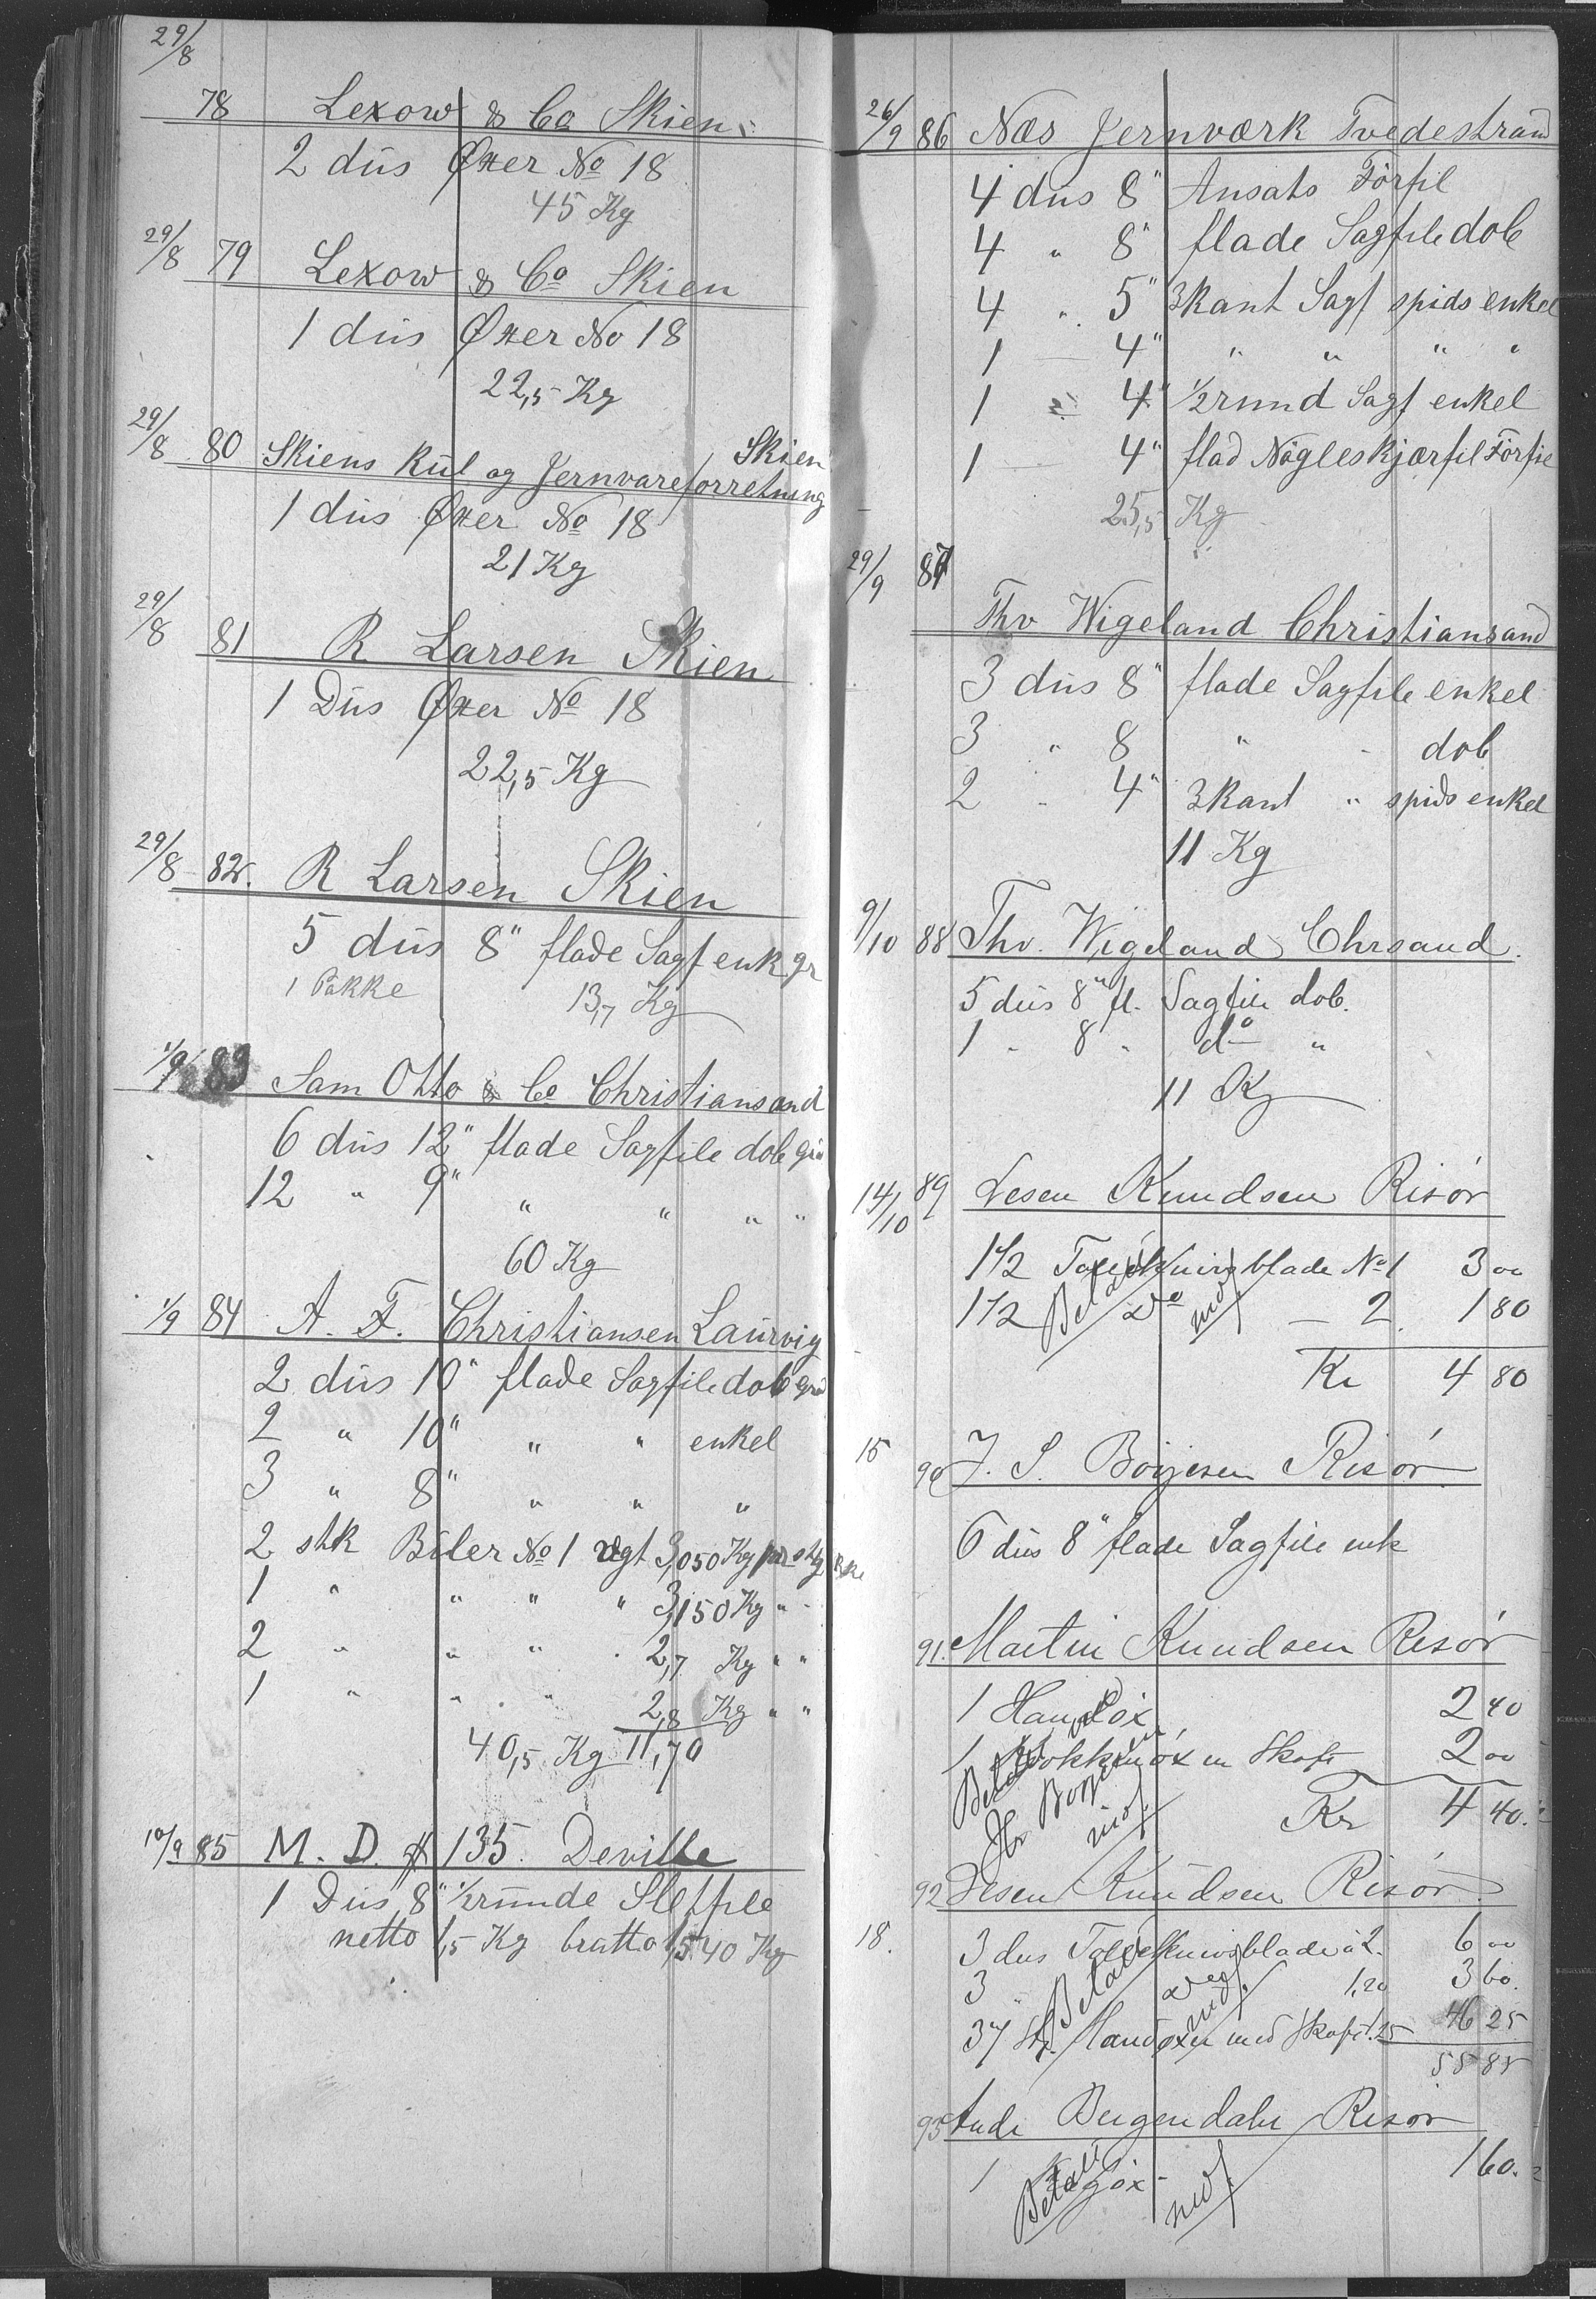 29/8
78 Lexow & Co Skien
2 dus Øxer No 18
45 Kg
29/8 79 Lexow & Co Skien
1 dus Øxer No 18
22,5 Kg
29/8 80 Skiens Kul og Jernvareforretning Skien
1 dus Øxer No 18
21 Kg
29/8 81 R Larsen Skien
1 Dus Øxer No 18
22,5 Kg
29/8 82. R Larsen Skien
5 dus 8" flade Sagf enk gr
1 Pakke 13,7 Kg
1/9 83 Sam Otto & Co Christiansand
6 dus 12" flade Sagfile dob
12 " 9" " " " "
60 Kg
1/9 84 A. F. Christiansen Laurvig
2 dus 10" flade Sagfile dob
2 " 10" " " enkel
3 " 8" " " "
2 stk Biler No 1 vgt 3,050 Kg pr stk
1 " " " " 3,150 Kg "
2 " " " " 2,7 Kg " "
1 " " " " 2,8 Kg " "
40,5 Kg 11,70
10/9 85 M. D. # 135. Deville
1 Dus 8" 1/2runde Sletfile
netto 1,5 Kg brutto 1,540 Kg
26/9 86 Næs Jernværk Tvedestrand
4 dus 8" Ansats Förfil
4 " 8" flade Sagfile dob
4 " 5" 3kant Sagf spids enkel
1 — 4" " " " "
1 " 4" 1/2rund Sagf enkel
1 — 4" flad Nögleskjærfil Förfil
25,5 Kg
29/9 87
Thv Wigeland Christiansand
3 dus 8" flade Sagfile enkel
3 " 8 " - dob
2 - 4" 3kant " spids enkel
11 Kg
9/10 88 Thv. Wigeland Chrsand.
5 dus 8" fl. Sagfile dob.
1 " 8 " do "
11 Kg
14/10 89 Knudsen Risör
1 1/2 blade No 1 3 00
1 1/2 Do — 2. 1 80
Betalt
Kr 4 80
15 90 J. S. Börjesen Risör
6 dus 8" flade Sagfile enk
91. Martin Knudsen Risör
1 Handöx 2 40
1 öx m Skaft 2 00
Betalt
Hr Borjesen
Kr 4 40.
92 Knudsen Risör.
18. 3 dus blade à 2. 6 00
3 " Do 1,20 3 60.
37 St. Handöxer med Skaft 1.25 46 25
Betalt
55 85
93 Bergendahl Risör
1 öx - 1 60.
Betalt